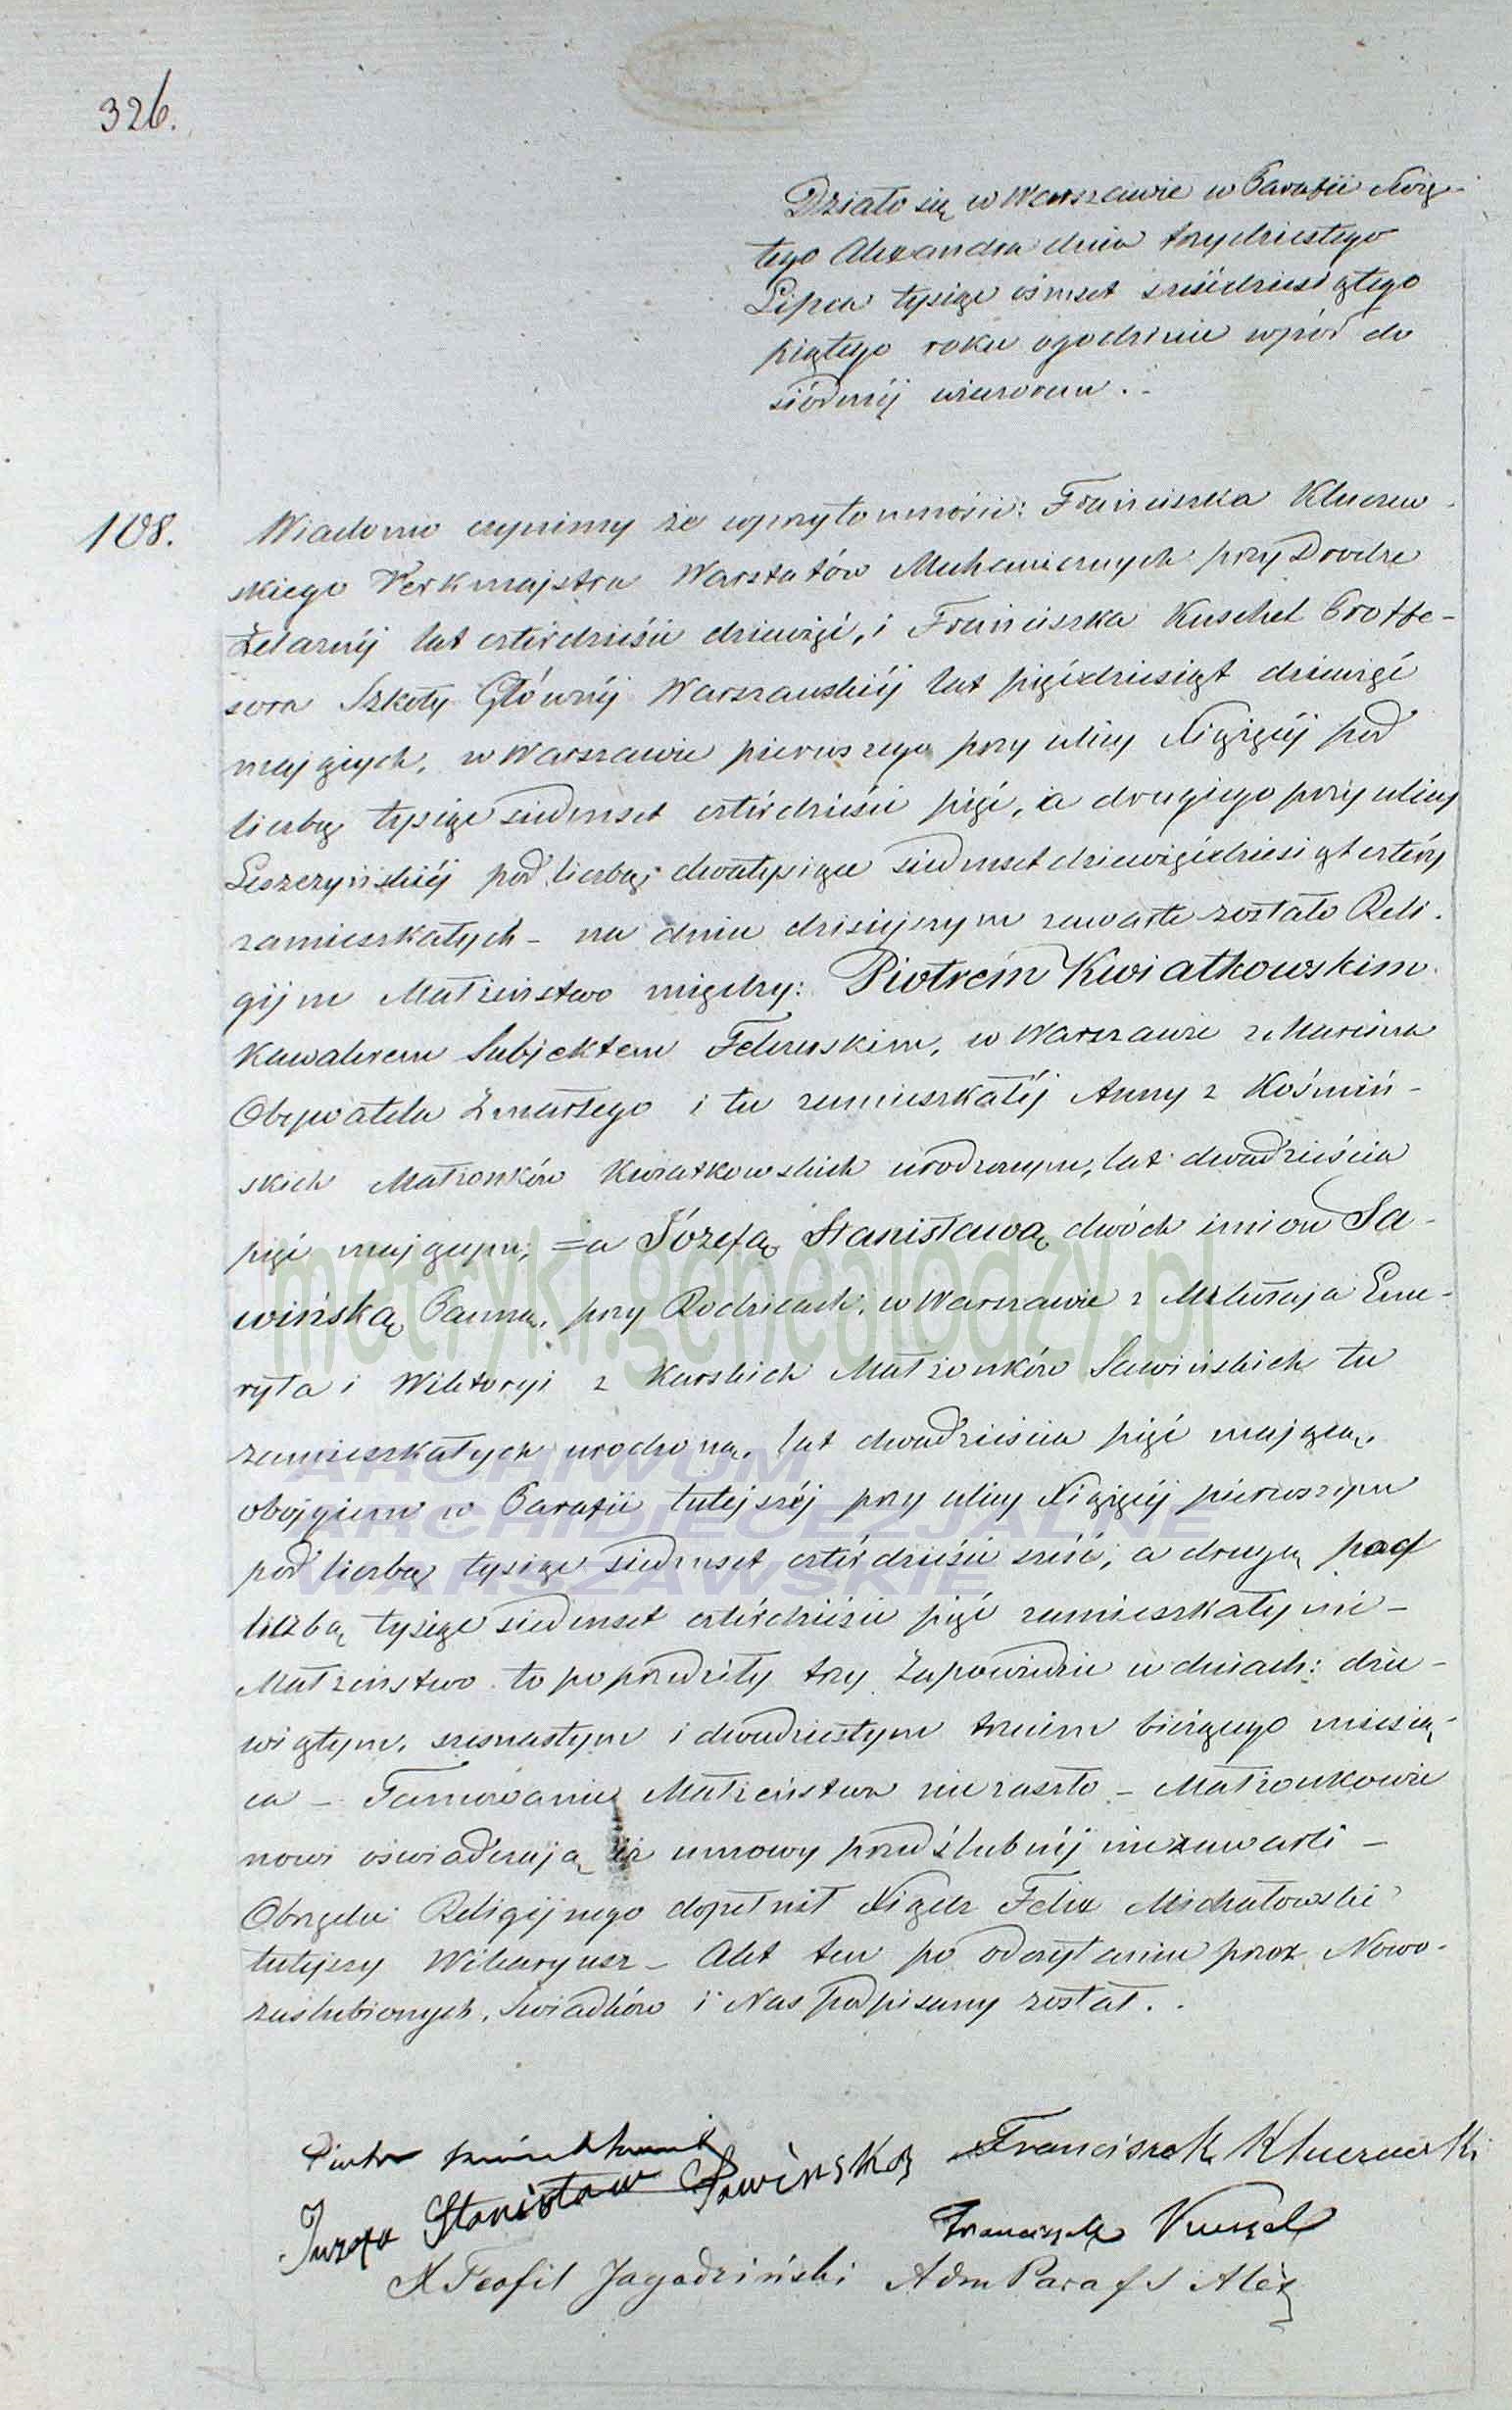 326.
Działo się w Warszawie w Parafii Świę-
tego Alexandra dnia trzydziestego
Lipca tysiąc ośmset sześćdziesiątego
piątego roku o godzinie wpół do
siódmej wieczorem.-
108. Wiadomo czynimy że w przytomności: Franciszka Kluczew-
skiego Verkmajstra Warsztatów Mechanicznych przy Drodze
Żelaznéj lat cztérdzieści dziewięć, i Franciszka Kuschel Proffe-
sora Szkoły Głównéj Warszawskiéj lat pięćdziesiąt dziewięć
mających, w Warszawie pierwszego przy ulicy Xiążęcéj pod
liczbą tysiąc siedmset cztérdzieści pięć, a drugiego przy ulicy
Leszczyńskiéj pod liczbą dwa tysiące siedmset dziewięćdziesiąt cztéry
zamieszkałych - na dniu dzisiejszym zawarte zostało Reli-
gijne Małżeństwo między: Piotrem Kwiatkowskim
Kawalerem Subjektem Felczerskim, w Warszawie z Marcina
Obywatela Zmarłego i tu zamieszkałéj Anny z Koźmiń-
skich Małżonków Kwiatkowskich urodzonym, lat dwadzieścia
pięć mającym; =a Józefą Stanisławą dwóch imion Sa-
wińską Panną, przy Rodzicach, w Warszawie z Mikołaja Eme-
ryta i Wiktoryi z Karskich Małżonków Sawińskich tu
zamieszkałych urodzoną, lat dwadzieścia pięć mającą,
obojgiem w Parafii tutejszéj przy ulicy Xiążęcéj pierwszym
pod liczbą tysiąc siedmset cztérdzieści sześć, a drugą pod
liczbą tysiąc siedmset cztérdzieści pięć zamieszkałymi -
Małżeństwo to poprzedziły trzy Zapowiedzie w dniach: dzie-
wiątym, szesnastym i dwudziestym trzecim bieżącego miesią-
ca - Tamowanie Małżeństwa nie zaszło - Małżonkowie
nowi oświadczają iż umowy przedślubnéj nie zawarli -
Obrzędu Religijnego dopełnił Xiądz Felix Michałowski
tutejszy Wikaryusz - Akt ten po odczytaniu przez Nowo-
zaślubionych, Świadków i Nas podpisany został..
Piotr Kwiatkowski
Franciszek Kluczewski
Juzefa Stanisława Sawińska
Franciszek Kuszel
X Teofil Jagodziński Adm Paraf S Alex
metryki.genealodzy.pl
ARCHIWUM
ARCHIDIECEZJALNE
WARSZAWSKIE